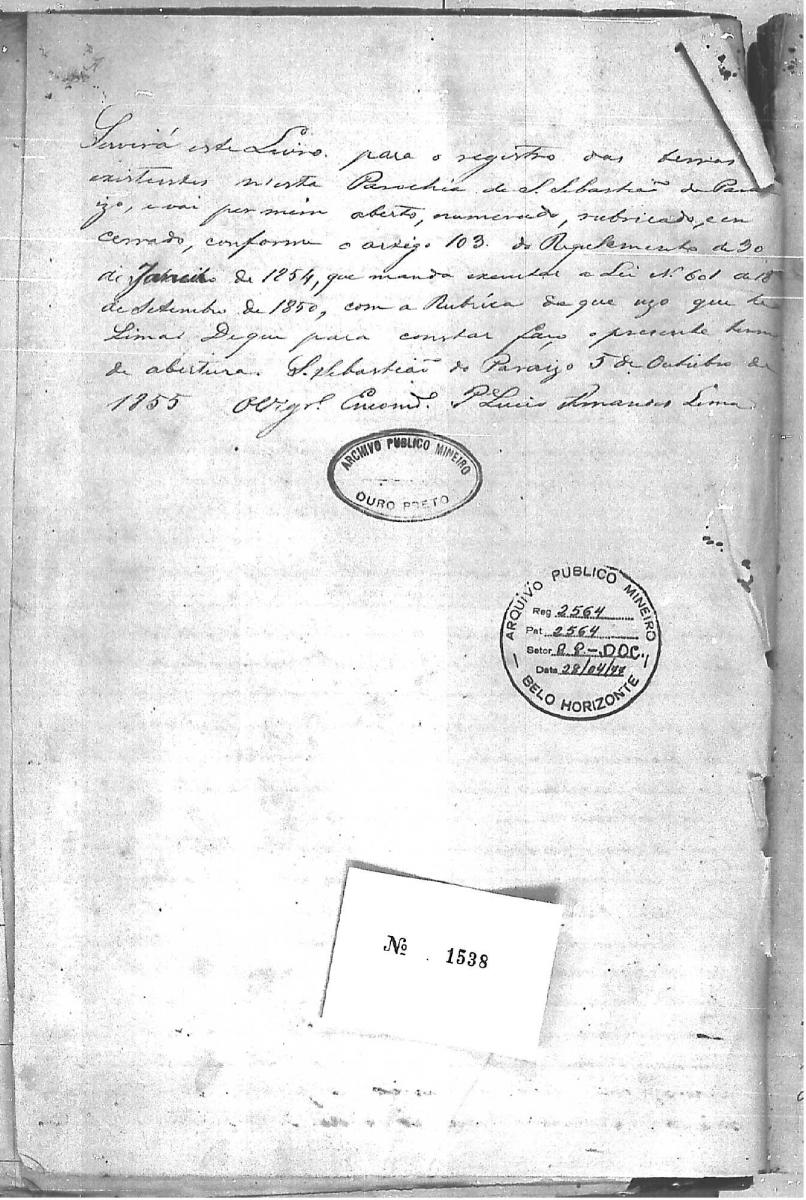 Servirá este Livro para o registro das terras
existentes n'esta Parochia de S. Sebastião do Para
izo, e vai por mim aberto, numerado, rubricado, e en
cerrado, conforme o artigo 103. do Regulamento de 30
de Janeiro de 1854, que manda executar a Lei Nº 601 de 18
de Setembro de 1850, com a Rubrica de que uzo que he
Lima. De que para constar faço o presente termo
de abertura. S. Sebastião do Paraizo 5 de Outubro de
1855 O Vigrº. Encomdº. Pe. Lima
ARCHIVO PUBLICO MINEIRO
OURO PRETO
ARQUIVO PUBLICO MINEIRO
Reg 2564
Pat 2564
Setor P.P-DOC.
Data 28/04/77
BELO HORIZONTE
Nº 1538